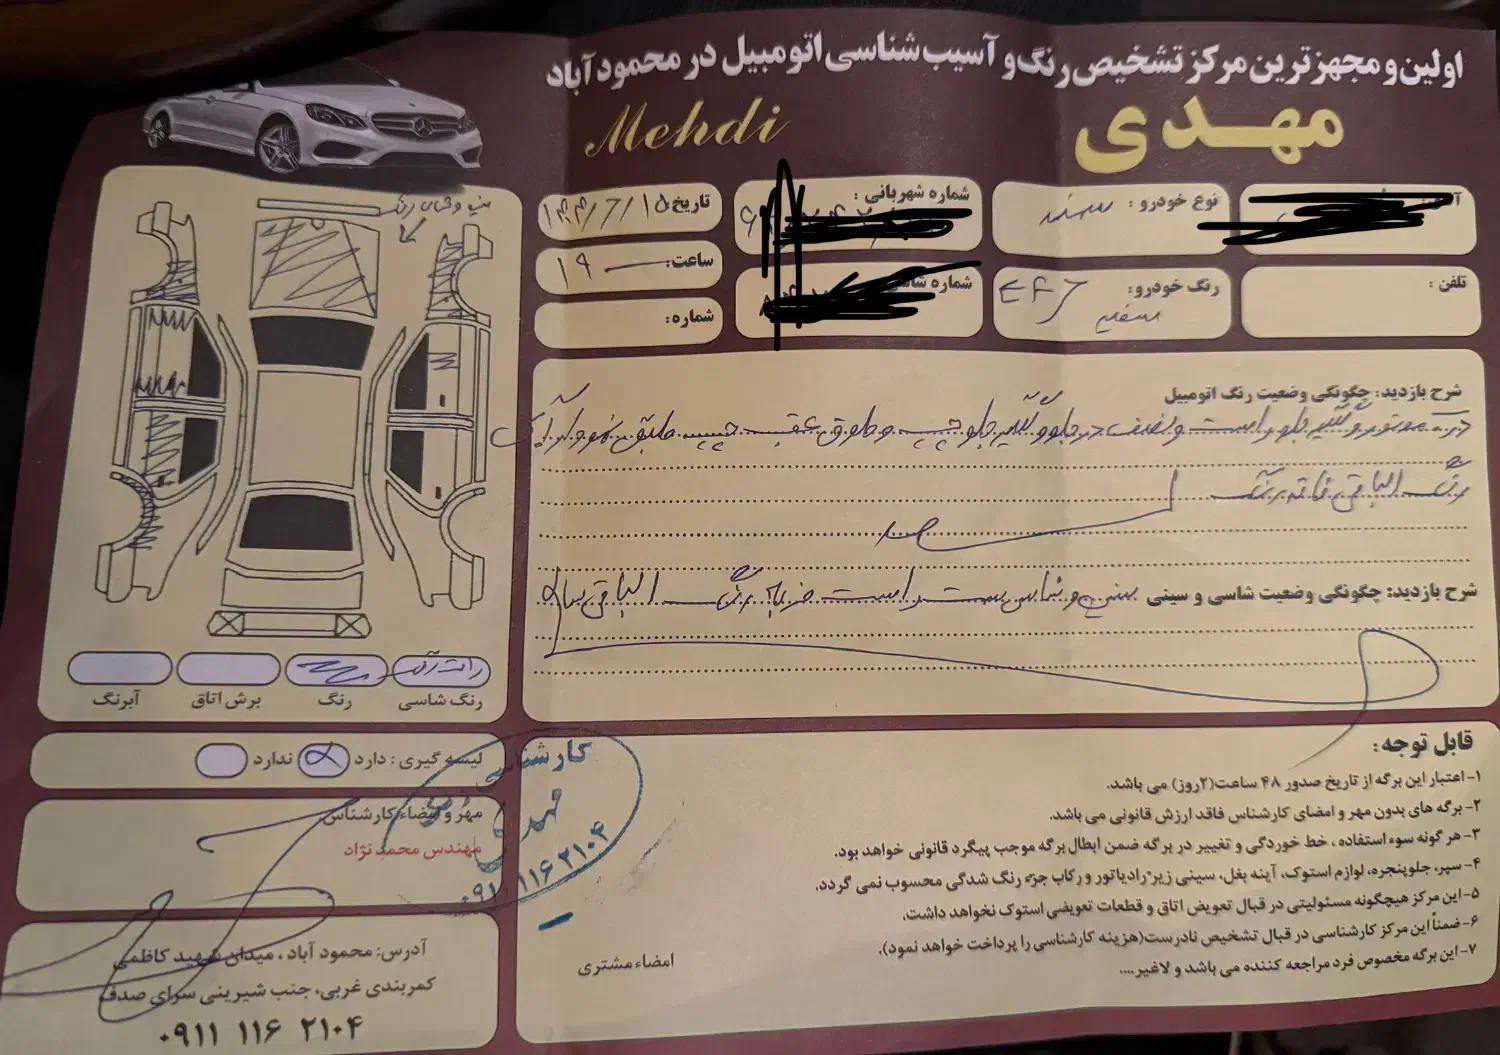 اولین و مجهزترین مرکز تشخیص رنگ و آسیب شناسی اتومبیل در محمودآباد
مهدی
Mehdi
شماره شهربانی :
نوع خودرو : سمند
تاریخ: ۱۴۰۳/۶/۱۵
ساعت: ۱۹
شماره:
شماره شاسی
رنگ خودرو: سفید
تلفن :
سینی و شاسی رنگ
شرح بازدید: چگونگی وضعیت رنگ اتومبیل
درب موتور و گلگیر جلو راست و نصف در جلو و گلگیر جلو چپ و عقب چپ طبق نمودار
رنگ الباقی فاقد رنگ
شرح بازدید: چگونگی وضعیت شاسی و سینی سینی و شاسی سمت راست ضربه رنگ الباقی سالم
رنگ شاسی
رنگ
برش اتاق
آبرنگ
لیسه گیری : دارد ندارد
مهر و امضاء کارشناس
مهندس محمدنژاد
کارشناسی
مهدی
۰۹۱۱ ۱۱۶ ۲۱۰۴
آدرس: محمود آباد ، میدان شهید کاظمی
کمربندی غربی، جنب شیرینی سرای صدف
۰۹۱۱ ۱۱۶ ۲۱۰۴
قابل توجه :
۱- اعتبار این برگه از تاریخ صدور ۴۸ ساعت(۲روز) می باشد.
۲- برگه های بدون مهر و امضای کارشناس فاقد ارزش قانونی می باشد.
۳- هر گونه سوء استفاده ، خط خوردگی و تغییر در برگه ضمن ابطال برگه موجب پیگرد قانونی خواهد بود.
۴- سپر، جلوپنجره، لوازم استوک، آینه بغل، سینی زیر-رادیاتور و رکاب جزء رنگ شدگی محسوب نمی گردد.
۵- این مرکز هیچگونه مسئولیتی در قبال تعویض اتاق و قطعات تعویضی استوک نخواهد داشت.
۶- ضمناً این مرکز کارشناسی در قبال تشخیص نادرست(هزینه کارشناسی را پرداخت خواهد نمود).
۷- این برگه مخصوص فرد مراجعه کننده می باشد و لاغیر....
امضاء مشتری